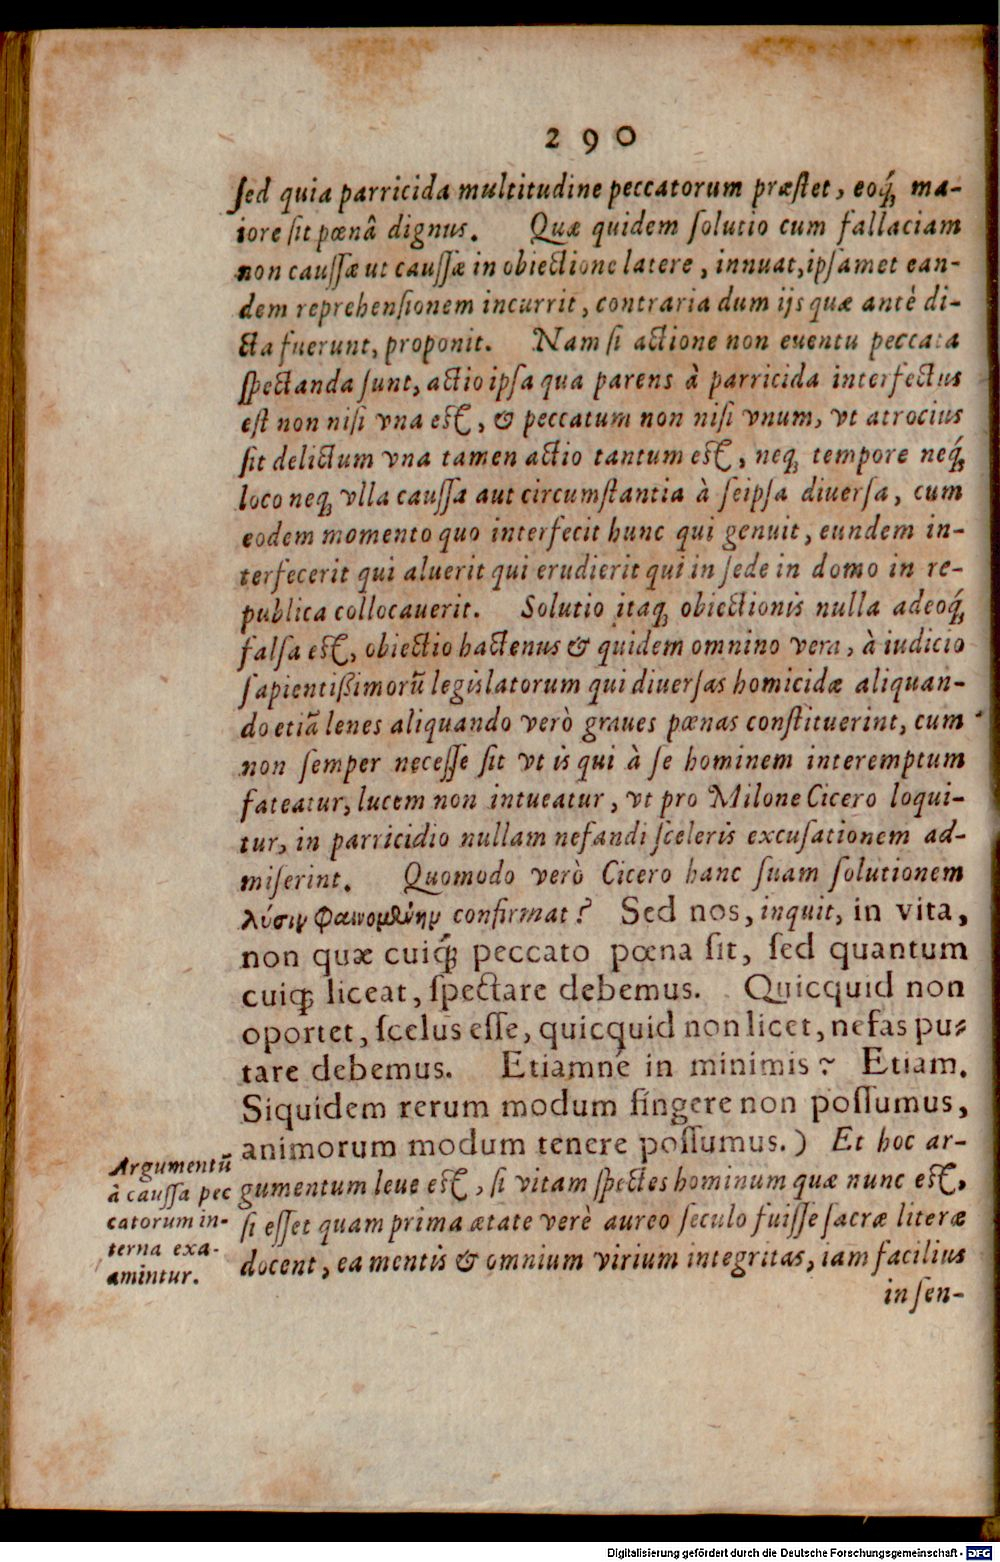 290
sed quia parricida multitudine peccatorum præstet, eoq́; ma-
iore sit pœnâ dignus. Quæ quidem solutio cum fallaciam
non caussæ ut caussæ in obiectione latere, innuat, ipsamet ean-
dem reprehensionem incurrit, contraria dum ijs quæ antè di-
cta fuerunt, proponit. Nam si actione non euentu peccata
spectanda sunt, actio ipsa qua parens à parricida interfectus
est non nisi vna est, & peccatum non nisi vnum, vt atrocius
sit delictum vna tamen actio tantum est, neq; tempore neq́;
loco neq; vlla caussa aut circumstantia à seipsa diuersa, cum
eodem momento quo interfecit hunc qui genuit, eundem in-
terfecerit qui aluerit qui erudierit qui in sede in domo in re-
publica collocauerit. Solutio itaq; obiectionis nulla adeoq́;
falsa est, obiectio hactenus & quidem omnino vera, à iudicio
sapientißimorũ legislatorum qui diuersas homicidæ aliquan-
do etiã lenes aliquando verò graues pœnas constituerint, cum
non semper necesse sit vt is qui à se hominem interemptum
fateatur, lucem non intueatur, vt pro Milone Cicero loqui-
tur, in parricidio nullam nefandi sceleris excusationem ad-
miserint. Quomodo verò Cicero hanc suam solutionem
λύσιν φαινομένην confirmat? Sed nos, inquit, in vita,
non quæ cuiq́; peccato pœna sit, sed quantum
cuiq; liceat, spectare debemus. Quicquid non
oportet, scelus esse, quicquid non licet, nefas pu-
tare debemus. Etiamné in minimis? Etiam.
Siquidem rerum modum fingere non possumus,
animorum modum tenere possumus.) Et hoc ar-
gumentum leue est, si vitam spectes hominum quæ nunc est,
si esset quam prima ætate verè aureo seculo fuisse sacræ literæ
docent, ea mentis & omnium virium integritas, iam facilius
in sen-
Argumentũ
à caussa pec
catorum in-
terna exa-
amintur.
Digitalisierung gefördert durch die Deutsche Forschungsgemeinschaft - DFG